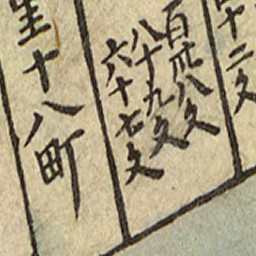 十二文
百卅八文
八十九文
六十七文
里十八町